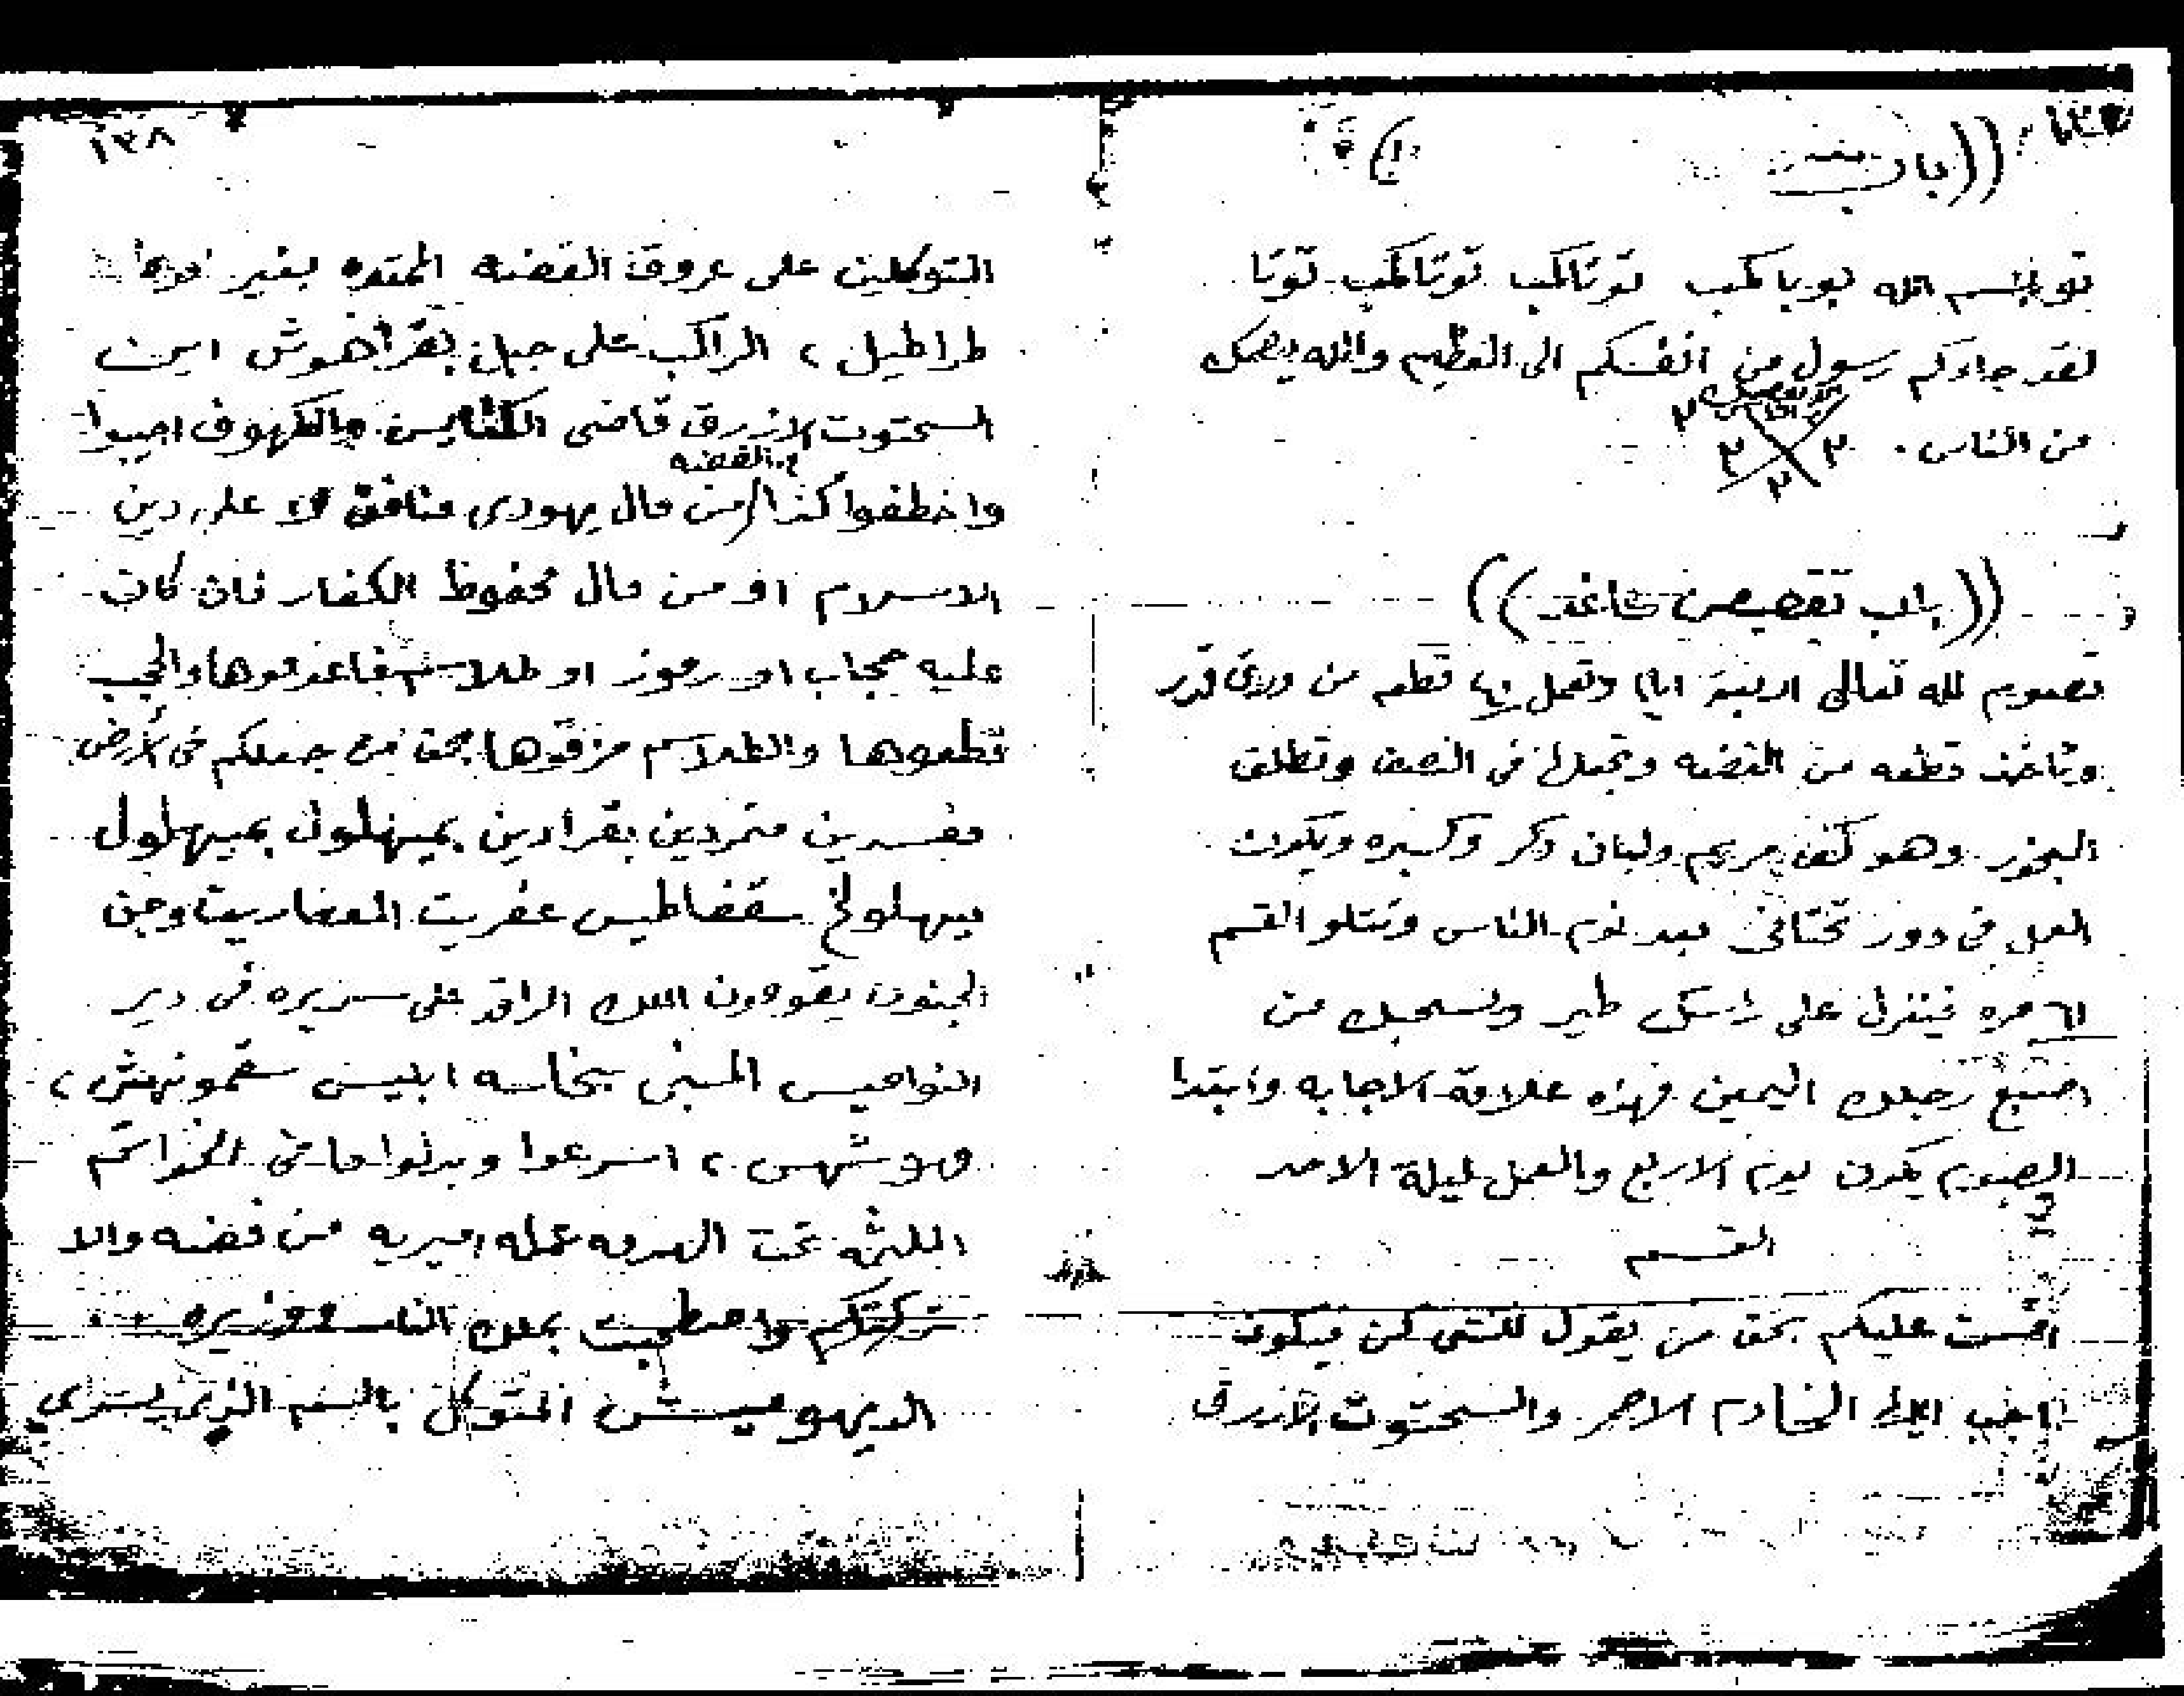 ((باب
توبسم الله توبا كب توتاكب توتاكب توتا
لقد جاءكم رسول من انفسكم الى العظيم والله يعصمك
من الناس . ٣ ٣ ٣ ٣
((باب تقصيص كاغد))
تصوم لله تعالى اربعة ايام وتعمل قطعه من ورق قدر
وتاخذ قطعه من الفضه وتجعلها في النصف وتطلق
البخور وهو كف مريم ولبان دكر وكسبره ويكون
العمل في دور تحتاني بعد نوم الناس وتتلو القسم
١٦ مره فينزل على راسك طير ويسحبك من
اصبع رجلك اليمين فهذه علامة الاجابه وابتدا
الصوم يكون يوم الاربع والعمل ليلة الاحد
القسم
اقسمت عليكم بحق من يقول للشئ كن فيكون
اجب ايها الخادم الاحمر والسحتوت الازرق
١٣٨
المتوكلين على عروق الفضه الممتده بغير
طراطيل ، الراكب على جبل بقراهوش اين
السحتوت الازرق قاضي الكنايس والكهوف اجيبوا
من الفضه
واخطفوا كذا / من مال يهودى منافق لا على دين
الاسلام او من مال محفوظ الكفار فان كان
عليه حجاب او رموز او طلاسم فاعدموها والحجب
قطعوها والطلاسم مزقوها بحق من جعلكم في الارض
مفسدين متمردين بقرادين بميهلول بميهلول
بيهلولخ سقفاطيس عفريت العفاريت وجن
الجنون يقومون الملك الراقد على سريره في دير
النواميس المبنى بنحاسه ابليس سقمونهش ،
وهوشهس ، اسرعوا وبدلوا ما في الخواتم
الثلاثه تحت الهدمه عمله اميريه من فضه والا
تركتكم واصطحبت بملك الناس ووزيره
الديهوميش المتوكل بالسم الذي يسرى